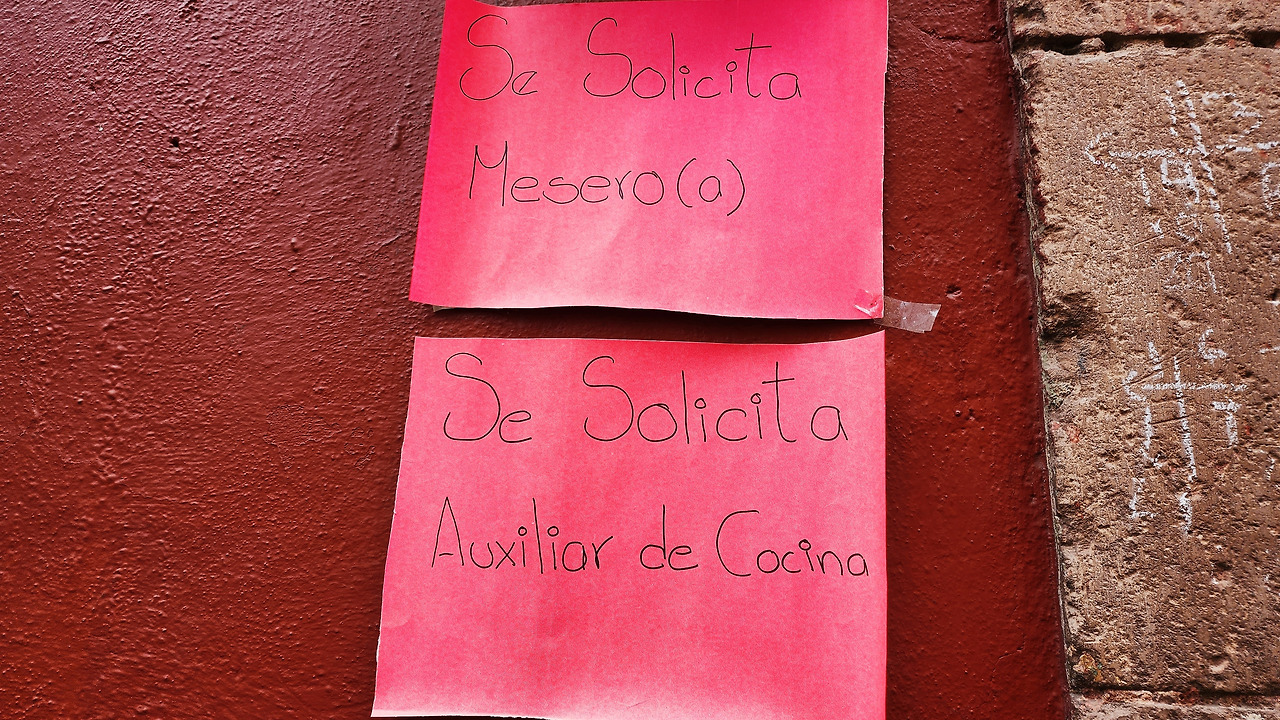 Se Solicita
Mesero(a)
Se Solicita
Auxiliar de Cocina